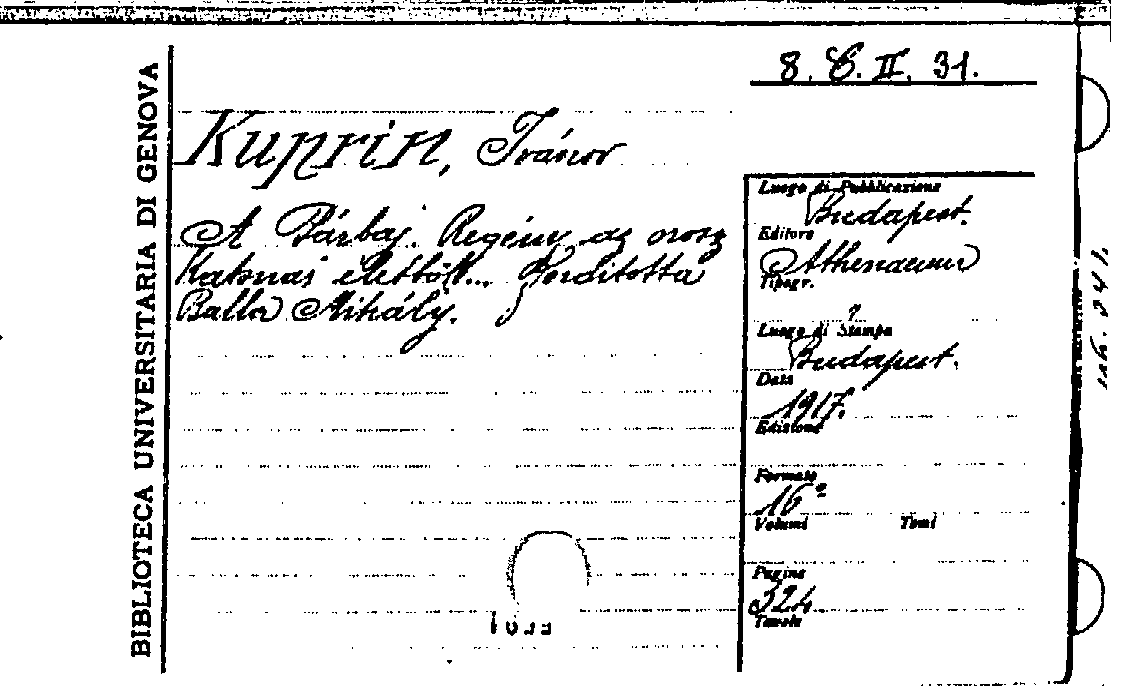 BIBLIOTECA UNIVERSITARIA DI GENOVA
8. C. II. 31.
Kuprin, Ivánov
A Párbaj. Regény az orosz
Katonai életből... Fordította
Balla Mihály.
Luogo di Pubblicazione
Budapest.
Editore
Athenaeum
Tipogr.
?
Luogo di Stampa
Budapest.
Data
1917.
Edizione
Formato
16º
Volumi Tomi
Pagine
324
Tavole